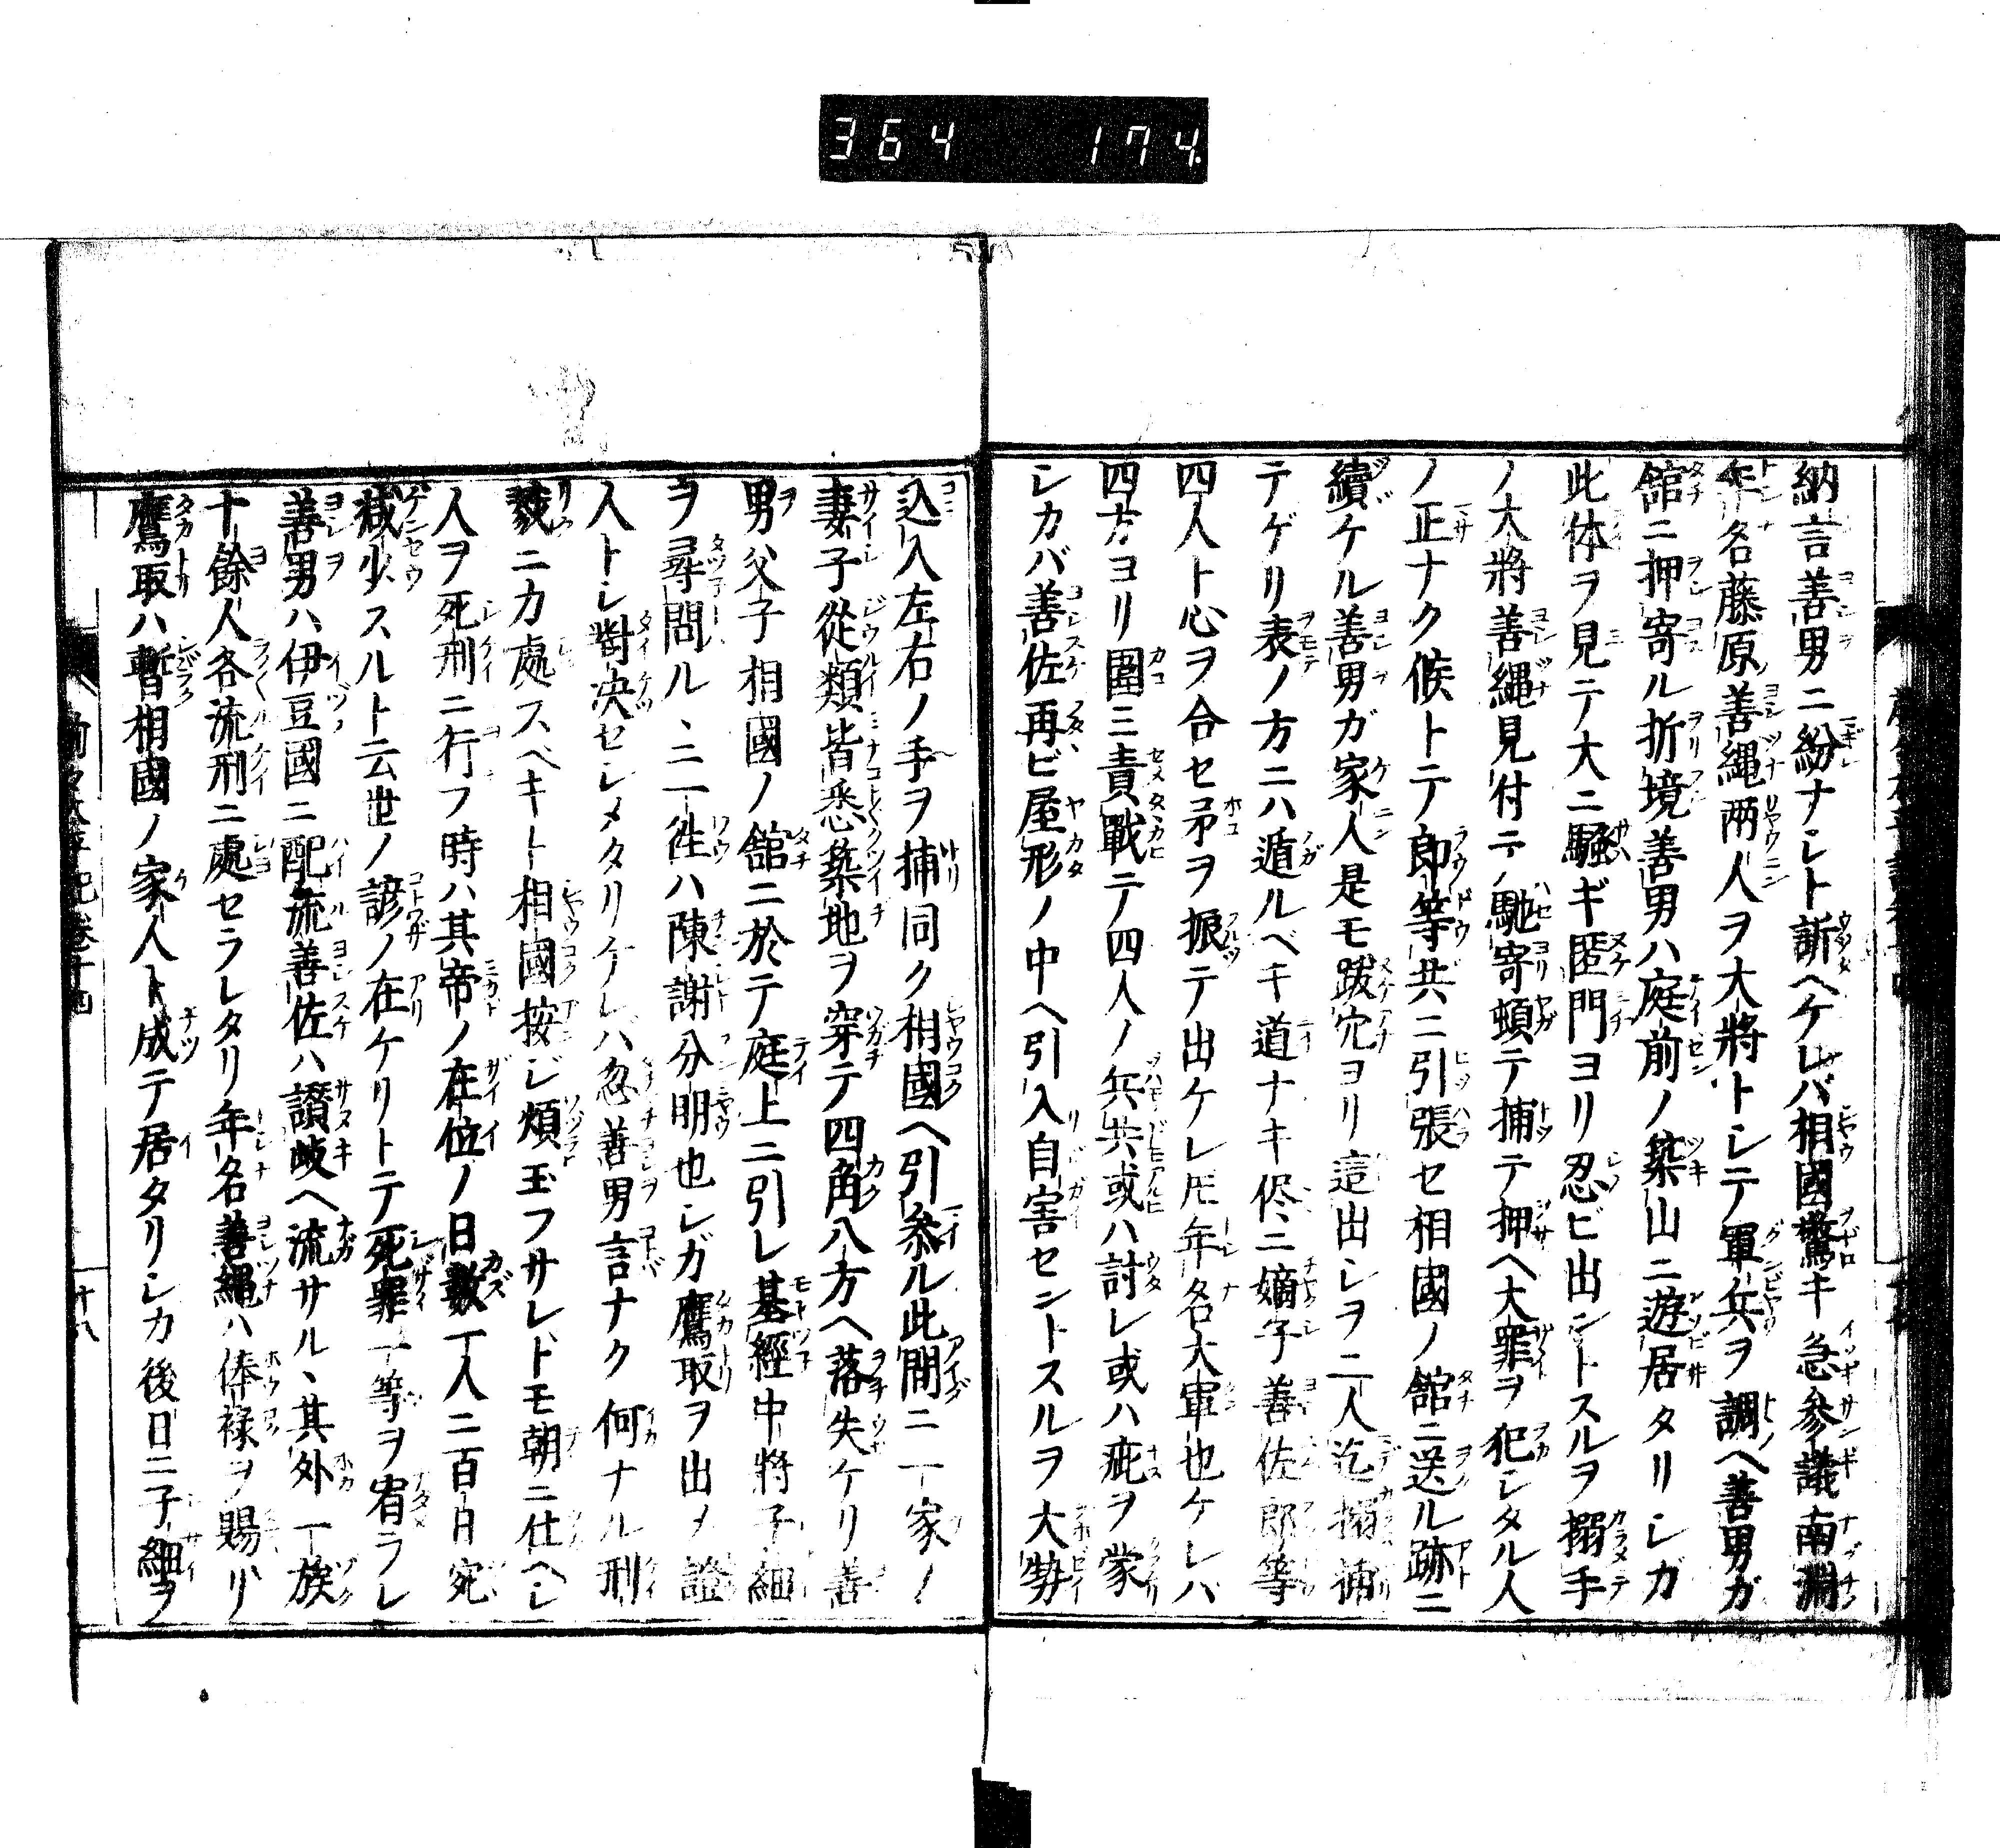 364 174
納言善男ニ紛ナシト訴ヘケレバ相國驚キ急參議南淵
年名藤原善縄兩人ヲ大將トシテ軍兵ヲ調ヘ善男ガ
舘ニ押寄ル折境善男ハ庭前ノ築山ニ遊居タリシガ
此体ヲ見テ大ニ騒ギ匿門ヨリ忍ビ出ントスルヲ搦手
ノ大將善縄見付テ馳寄頓テ捕テ押ヘ大罪ヲ犯シタル人
ノ正ナク候トテ郎等共ニ引張セ相國ノ舘ニ送ル跡ニ
續ケル善男ガ家人是モ跋穴ヨリ這出シヲ二人迄搦捕
テゲリ表ノ方ニハ遁ルベキ道ナキ侭ニ嫡子善佐郎等
四人ト心ヲ合セ矛ヲ振テ出ケレ𪜈年名大軍也ケレバ
四方ヨリ圍ミ責戰テ四人ノ兵共或ハ討レ或ハ疵ヲ蒙
シカバ善佐再ビ屋形ノ中ヘ引入自害セントスルヲ大勢
込入左右ノ手ヲ捕同ク相國ヘ引参ル此間ニ一家ノ
妻子從類皆悉築地ヲ穿テ四角八方ヘ落失ケリ善
男父子相國ノ舘ニ於テ庭上ニ引レ基經中將子細
ヲ尋問ル、ニ一徃ハ陳謝分明也シガ鷹取ヲ出メ證
人トシ對决セシメタリケレハ忽善男言ナク何ナル刑
戮ニカ處スベキト相國按ジ煩玉フサレドモ朝ニ仕ヘシ
人ヲ死刑ニ行フ時ハ其帝ノ在位ノ日數一人ニ百日宛
减少スルト云世ノ諺ノ在ケリトテ死罪一等ヲ宥ラレ
善男ハ伊豆國ニ配流善佐ハ讃岐ヘ流サル、其外一族
十餘人各流刑ニ處セラレタリ年名善縄ハ俸禄ヲ賜リ
鷹取ハ暫相國ノ家人ト成テ居タリシカ後日ニ子細ヲ
十八